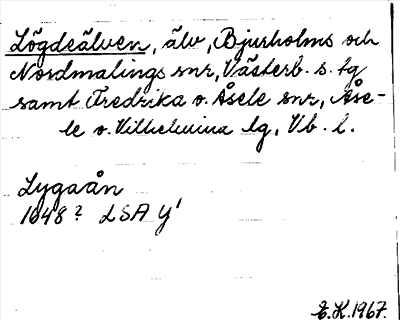 Lögdeälven, älv, Bjurholms och
Nordmalings snr, Västerb. s. tg
samt Fredrika o. Åsele snr, Åse-
le o. Vilhelmina lg, Vb. l.
Lygaån
1648? LSA Y'
E.K. 1967.